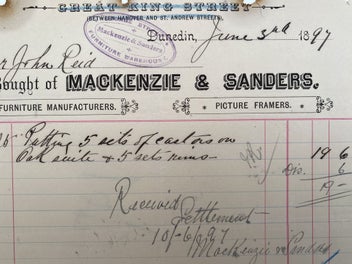 GREAT KING STREET
(BETWEEN HANOVER AND ST. ANDREW STREETS)
KING STREET
Mackenzie & Sanders
FURNITURE WAREHOUSE
Dunedin, June 3rd 1897
r John Reid
Bought of MACKENZIE & SANDERS.
FURNITURE MANUFACTURERS. PICTURE FRAMERS.
Putting 5 sets of castors on
Oak suite & 5 sets rims 19 6
Dis. 6
19 -
Received
Settlement
10/6/97
MacKenzie & Sanders